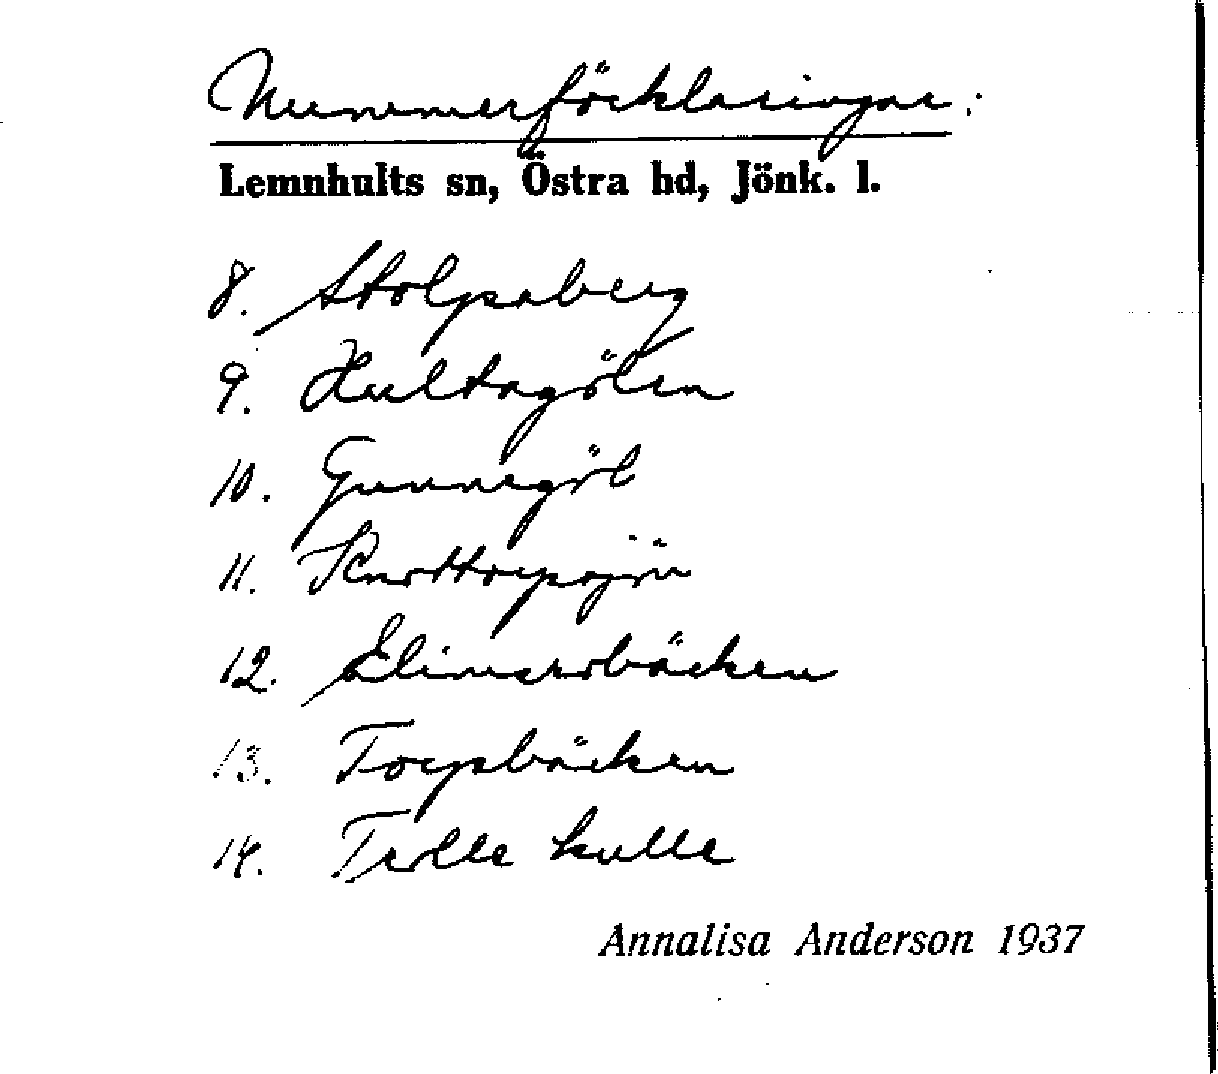 Nummerförklaringar:
Lemnhults sn, Östra hd, Jönk. l.
8. Stolpaberg
9. Hultagölen
10. Gunnegöl
11. Knottorpsjön
12. Elinersbäcken
13. Torpsbäcken
14. Trolle kulle
Annalisa Anderson 1937